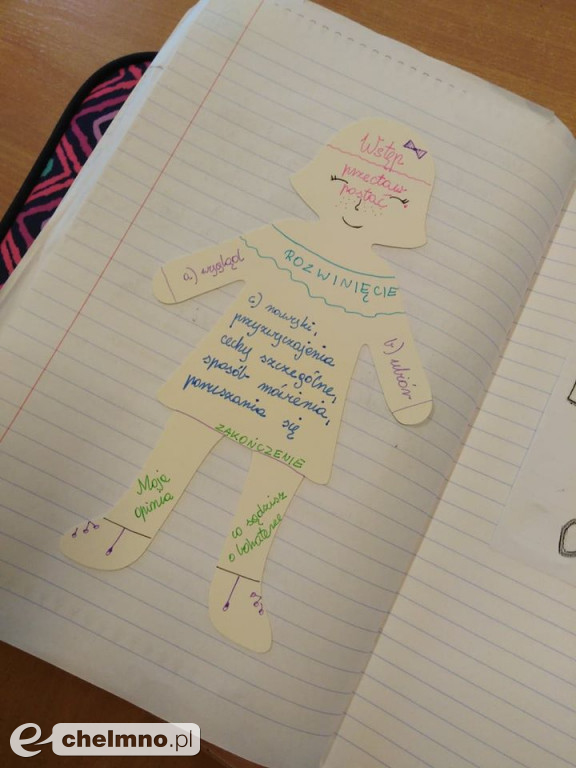 Wstęp
przedstaw
postać
ROZWINIĘCIE
a) wygląd
b) ubiór
c) nawyki,
przyzwyczajenia
cechy szczególne,
sposób mówienia,
poruszania się
ZAKOŃCZENIE
Moja
opinia
co sądzisz
o bohaterce
e-chelmno.pl